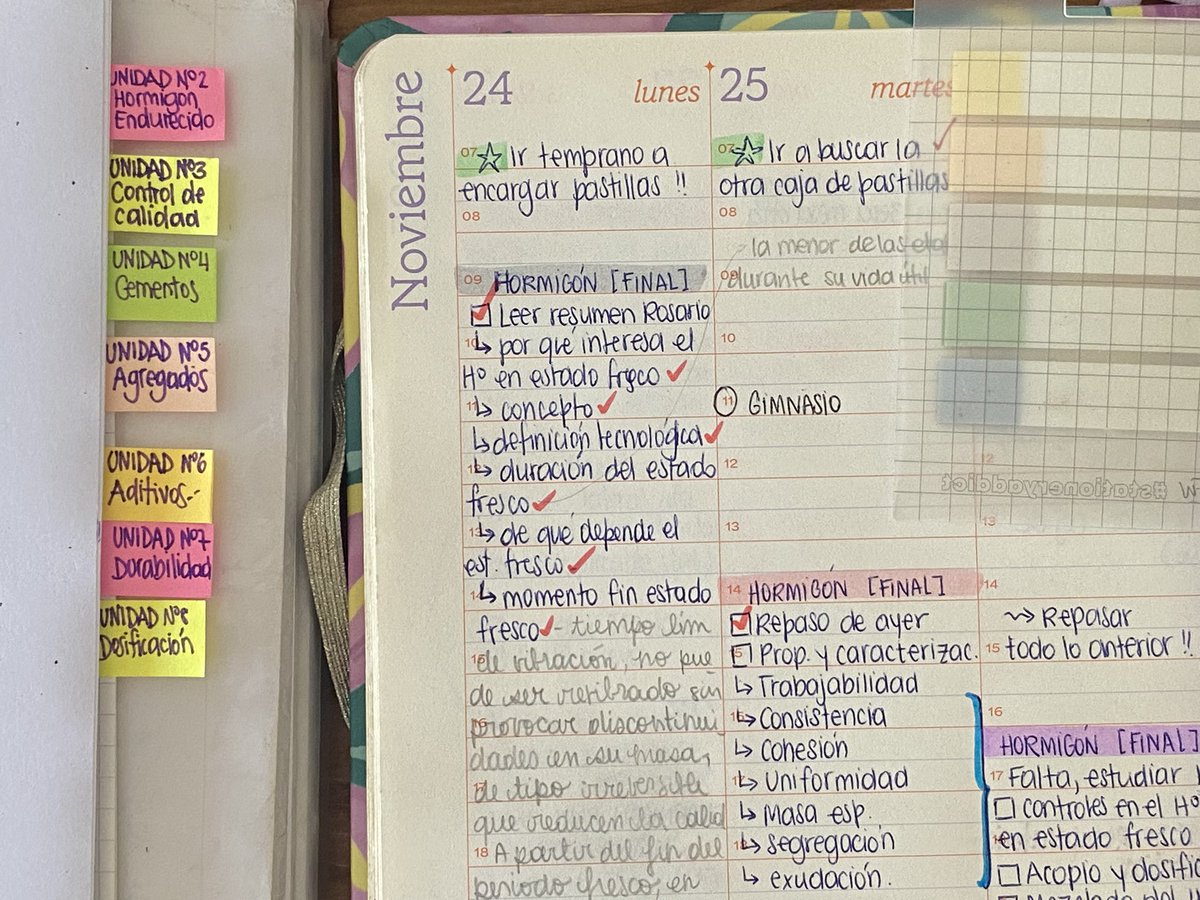 UNIDAD Nº2
Hormigon
Endurecido
UNIDAD Nº3
Control de
calidad
UNIDAD Nº4
Cementos
UNIDAD Nº5
Agregados
UNIDAD Nº6
Aditivos
UNIDAD Nº7
Durabilidad
UNIDAD Nº8
Dosificación
Noviembre
24 lunes
07 Ir temprano a
encargar pastillas !!
08
09 HORMIGÓN [FINAL]
Leer resumen Rosario
10 ↳ por qué interesa el
Hº en estado fresco ✓
11 ↳ concepto ✓
↳ definición tecnológica ✓
12 ↳ duración del estado
fresco ✓
13 ↳ de qué depende el
est. fresco ✓
14 ↳ momento fin estado
fresco ✓ - tiempo lim
15 de vibración, no pue
de ser revibrado sin
16 provocar discontinui
dades en su masa,
17 de tipo irreversible
que reducen la calid
18 A partir del fin del
periodo fresco, en
25 martes
07 Ir a buscar la ✓
otra caja de pastillas
08
la menor de las
09 durante su vida útil
10
11 GIMNASIO
12
13
14 HORMIGÓN [FINAL]
Repaso de ayer
15 Prop. y caracterizac.
↳ Trabajabilidad
16 ↳ Consistencia
↳ Cohesión
17 ↳ Uniformidad
↳ Masa esp.
18 ↳ segregación
↳ exudación.
#stationeryaddict
12
13
14
Repasar
15 todo lo anterior !!
16
HORMIGÓN [FINAL]
17 Falta, estudiar
Controles en el Hº
en estado fresco
Acopio y